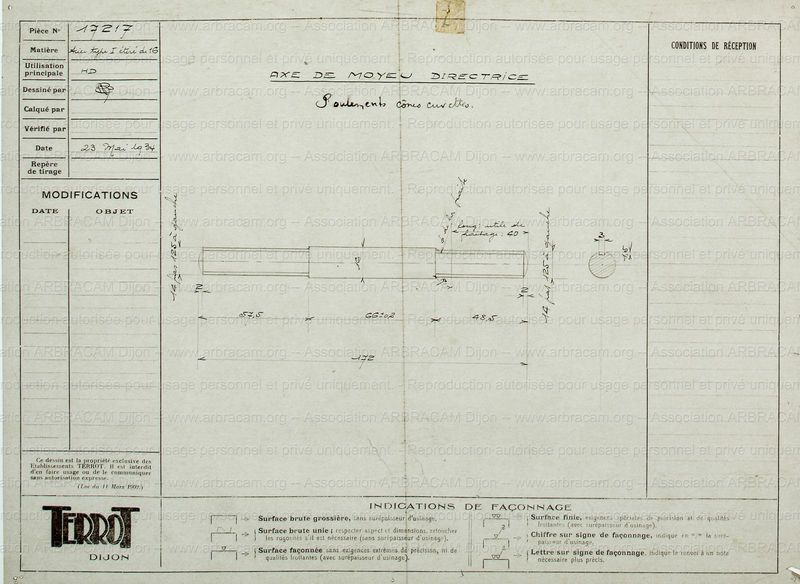 Pièce N° 17217
Matière Acier type I étiré de 16
Utilisation principale HD
Dessiné par
Calqué par
Vérifié par
Date 23 Mai 1934
Repère de tirage
MODIFICATIONS
DATE OBJET
AXE DE MOYEU DIRECTRICE
Roulements cônes cuvettes.
CONDITIONS DE RÉCEPTION
14 pas 125 à gauche
long: utile de
filetage: 40
14 pas 125 à gauche
16
3
1,5
2
2
57,5
66±0,2
48,5
172
Ce dessin est la propriété exclusive des
Etablissements TERROT. Il est interdit
d'en faire usage ou de le communiquer
sans autorisation expresse.
(Loi du 11 Mars 1902.)
TERROT
DIJON
INDICATIONS DE FAÇONNAGE
Surface brute grossière, sans surépaisseur d'usinage.
Surface brute unie : respecter aspect et dimensions, retoucher
les rugosités s'il est nécessaire (sans surépaisseur d'usinage).
Surface façonnée sans exigences extrêmes de précision, ni de
qualités frottantes (avec surépaisseur d'usinage).
Surface finie, exigences spéciales de précision et de qualités
frottantes (avec surépaisseur d'usinage).
Chiffre sur signe de façonnage, indique en m/m la suré-
paisseur d'usinage.
Lettre sur signe de façonnage, indique le renvoi à un note
nécessaire plus précis.
www.arbracam.org – Association ARBRACAM Dijon
Reproduction autorisée pour usage personnel et privé uniquement.